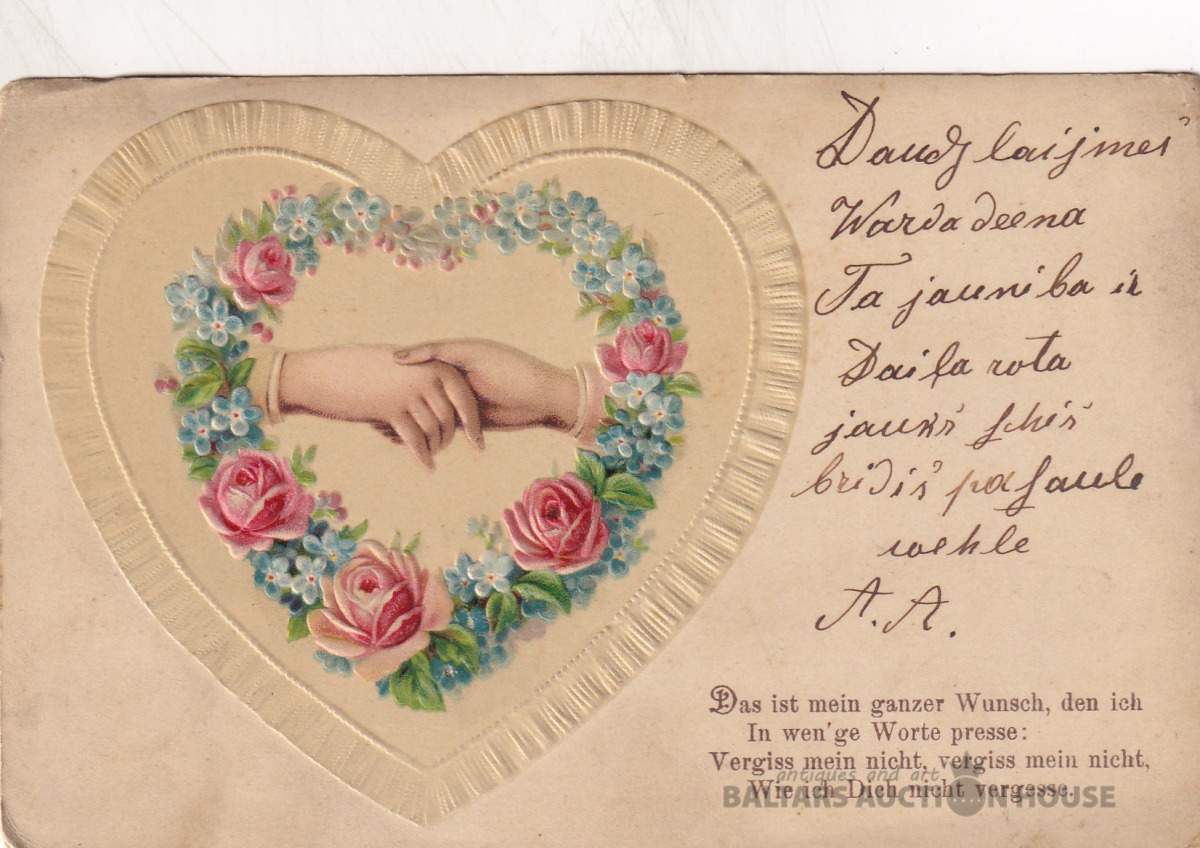 Daudz laijmes
Warda deena
Ta jauniba ir
Daiļa rota
jauks schis
bridis pasaule
wehle
A. A.
Das ist mein ganzer Wunsch, den ich
In wen'ge Worte presse:
Vergiss mein nicht, vergiss mein nicht,
Wie ich Dich nicht vergesse.
antiques and art
BALTARS AUCTION HOUSE